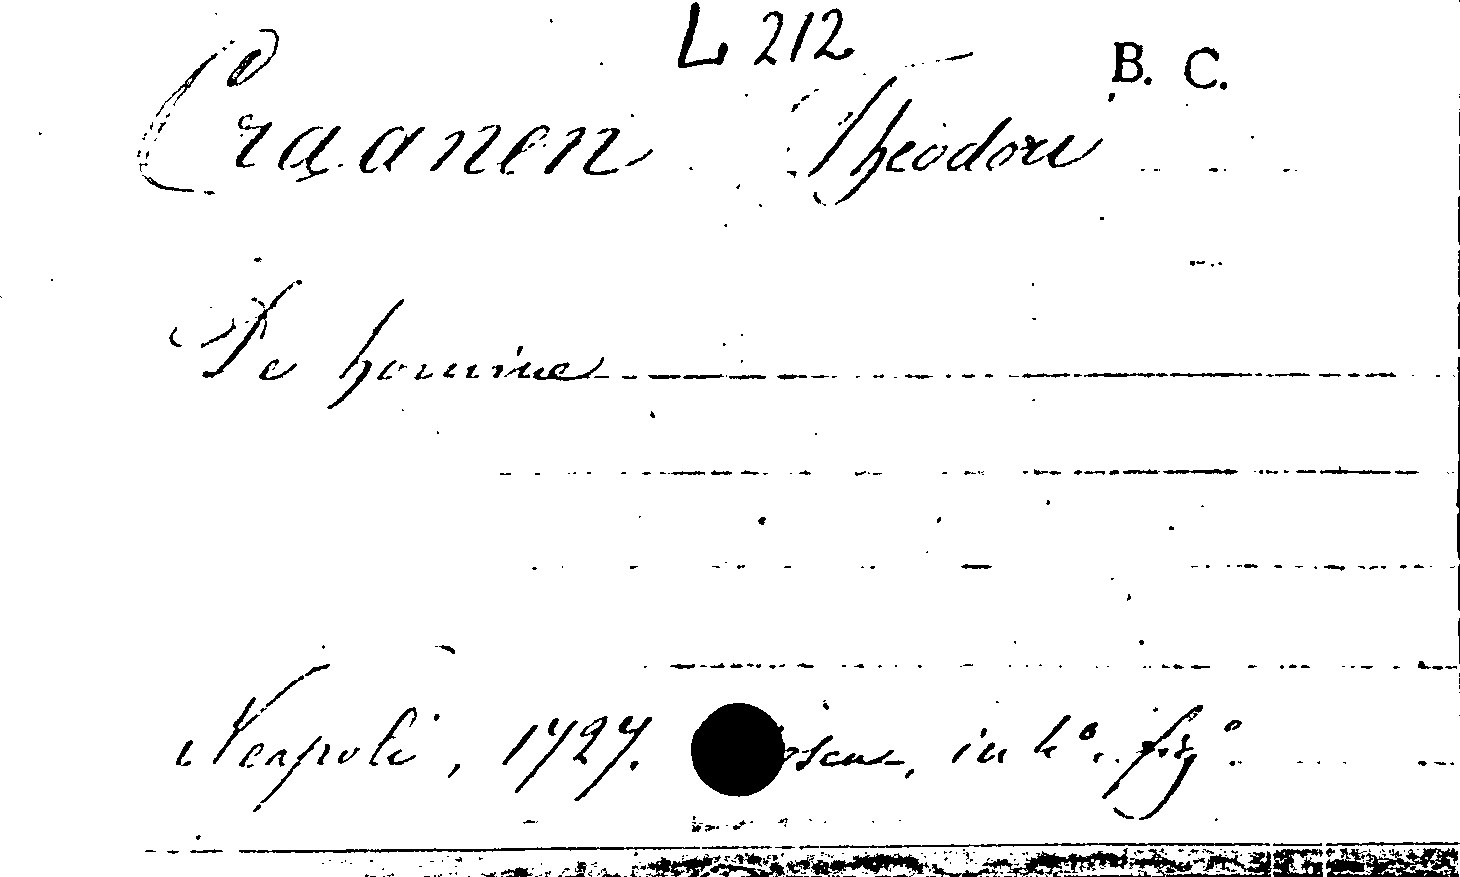 L 212
B. C.
Craanen Theodore
De homine
Neapoli, 1727. in 4°. fig°.